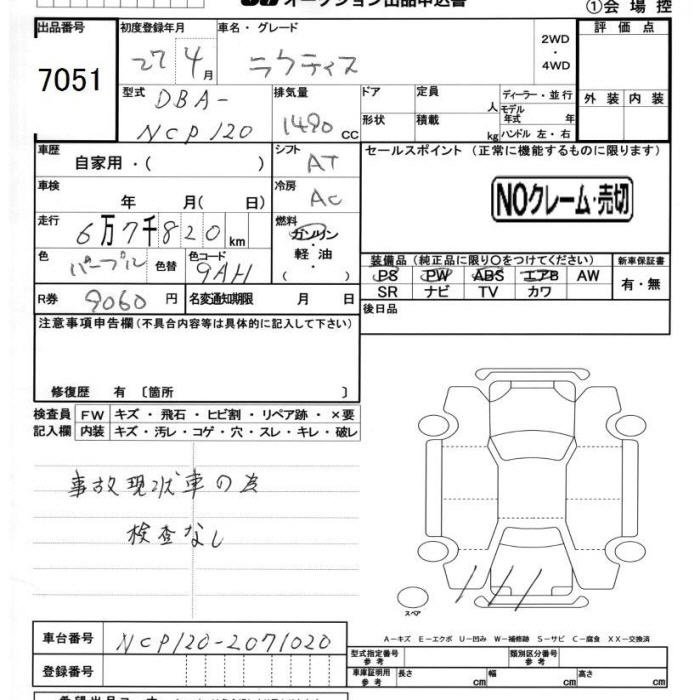 オークション出品申込書
①会場控
出品番号 7051
初度登録年月 27 4月
車名・グレード ラクティス
2WD
・
4WD
評価点
外装 内装
型式 DBA-
NCP120
排気量 1490 cc
ドア 定員 人
形状 積載 kg
ディーラー・並行
モデル
年式 年
ハンドル 左・右
車歴 自家用・( )
シフト AT
セールスポイント (正常に機能するものに限ります)
NOクレーム・売切
車検 年 月( 日)
冷房 AC
走行 6万7千820km
燃料 ガソリン
・
軽油
・
( )
色 パープル 色替 色コード 9AH
装備品(純正品に限り○をつけてください) 新車保証書
PS PW ABS エアB AW 有・無
SR ナビ TV カワ
R券 9060 円 名変通知期限 月 日
後日品
注意事項申告欄(不具合内容等は具体的に記入して下さい)
修復歴 有 〔箇所 〕
検査員 FW キズ・飛石・ヒビ割・リペア跡・×要
記入欄 内装 キズ・汚レ・コゲ・穴・スレ・キレ・破レ
事故現状車の為
検査なし
スペア
A-キズ E-エクボ U-凹み W-補修跡 S-サビ C-腐食 XX-交換済
車台番号 NCP120-2071020
型式指定番号 参考 類別区分番号 参考
登録番号
車庫証明用 参考 長さ cm 幅 cm 高さ cm